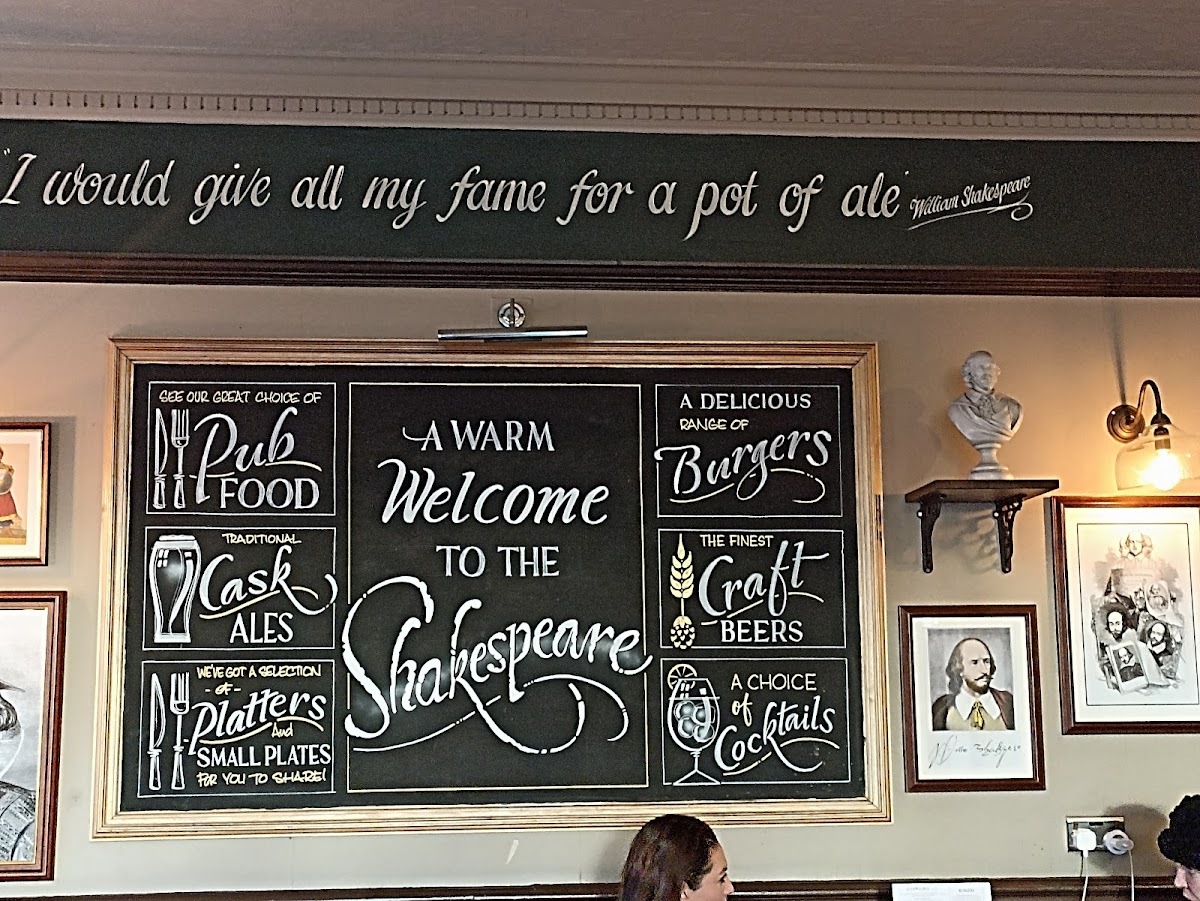 "I would give all my fame for a pot of ale" William Shakespeare
SEE OUR GREAT CHOICE OF
Pub
FOOD
TRADITIONAL
Cask
ALES
WE'VE GOT A SELECTION
- OF -
Platters
And
SMALL PLATES
FOR YOU TO SHARE!
A WARM
Welcome
TO THE
Shakespeare
A DELICIOUS
RANGE OF
Burgers
THE FINEST
Craft
BEERS
A CHOICE
of
Cocktails